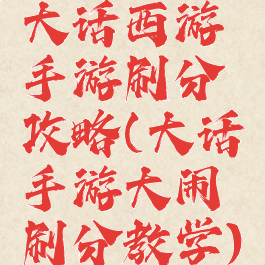 大话西游
手游刷分
攻略(大话
手游大闹
刷分教学)